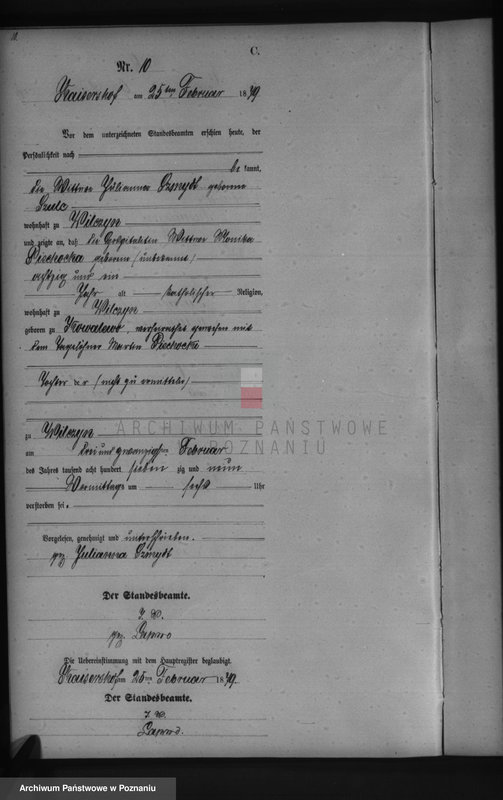 10.
C.
Nr. 10
Kaisershof am 25ten Februar 1879
Vor dem unterzeichneten Standesbeamten erschien heute, der
Persönlichkeit nach
be kannt,
die Wittwe Julianna Szmydt geborene
Szulc
wohnhaft zu Wilczyn
und zeigte an, daß die Hospitalitin Wittwe Monika
Piechocka geborene (unbekannt)
achtzig und ein
Jahr alt katholischer Religion,
wohnhaft zu Wilczyn
geboren zu Kowalewo, verheirathet gewesen mit
dem Tagelöhner Martin Piechocki
Tochter der (nicht zu ermitteln)
zu Wilczyn
am drei und zwanzigsten Februar
des Jahres tausend acht hundert sieben zig und neun
Vormittags um sechs Uhr
verstorben sei.
Vorgelesen, genehmigt und unterschrieben.
gez. Julianna Szmydt
Der Standesbeamte.
I. V.
gez.
Die Uebereinstimmung mit dem Hauptregister beglaubigt.
Kaisershof am 25ten Februar 1879
Der Standesbeamte.
I. V.
ARCHIWUM PAŃSTWOWE
W POZNANIU
Archiwum Państwowe w Poznaniu